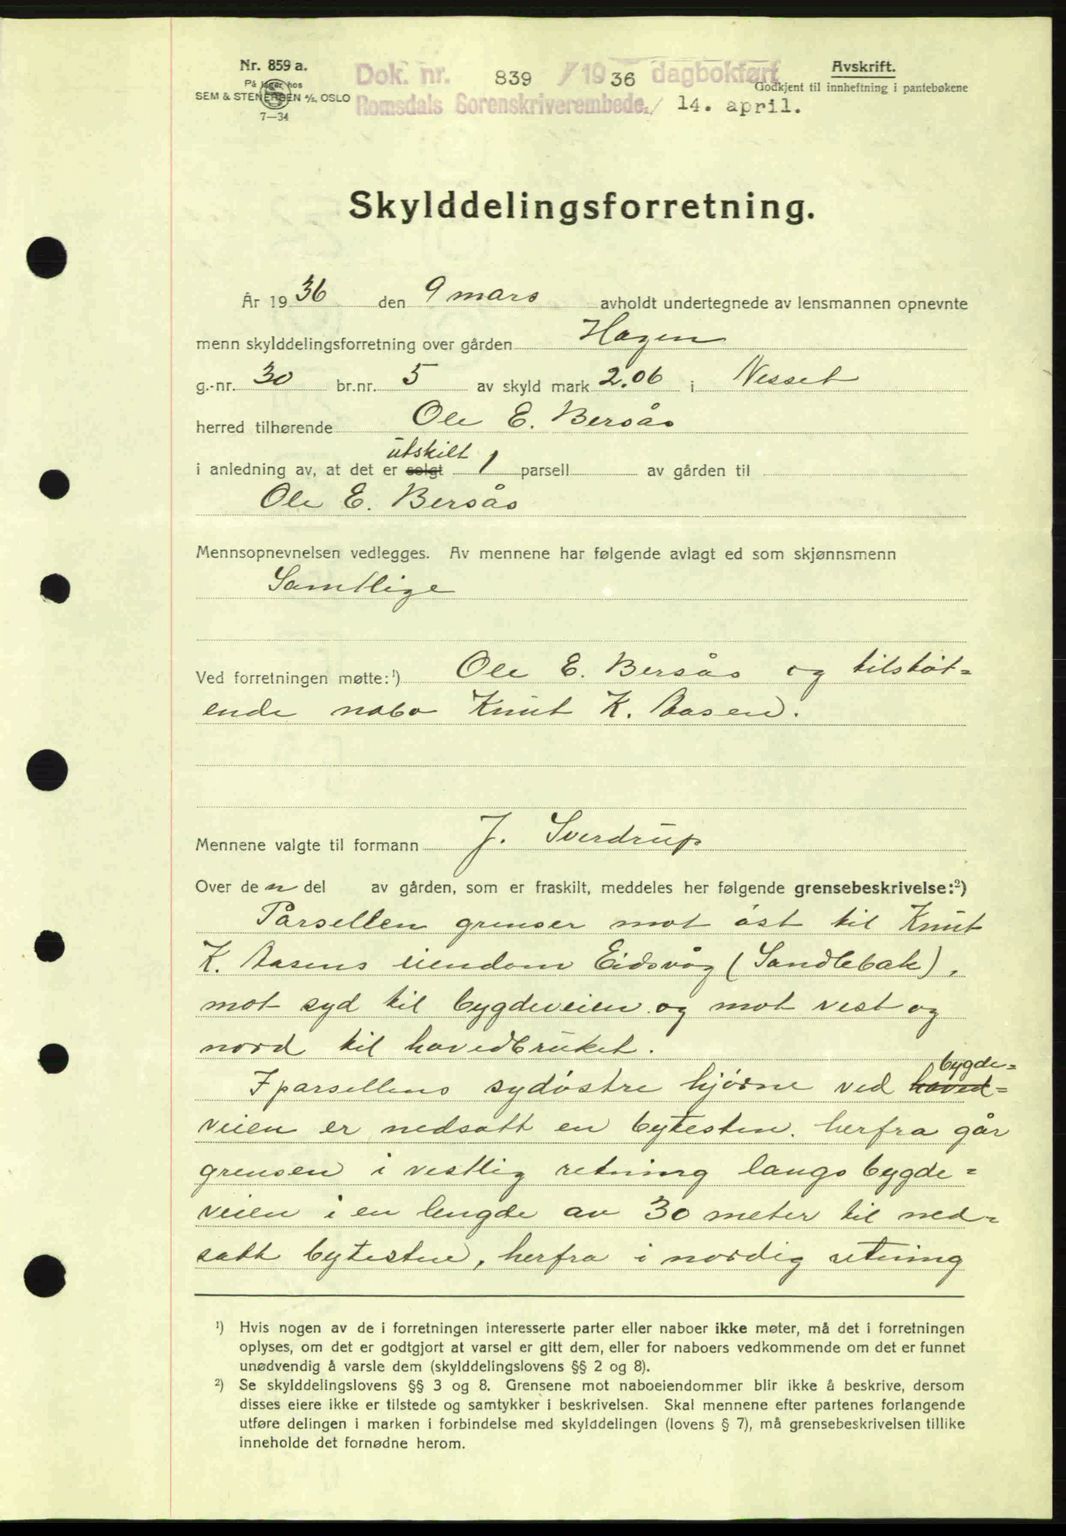 Nr. 859 a.
På lager hos
SEM & STENERSEN A/S, OSLO
7—34
Dok. nr. 839 / 19 36 dagbokført
Romsdals Sorenskriverembede, 14. april.
Avskrift.
Godkjent til innheftning i pantebøkene
Skylddelingsforretning.
År 1936 den 9 mars avholdt undertegnede av lensmannen opnevnte
menn skylddelingsforretning over gården Hagen
g.-nr. 30 br.nr. 5 av skyld mark 2.06 i Nesset
herred tilhørende Ole E. Bersås
utskilt
i anledning av, at det er solgt 1 parsell av gården til
Ole E. Bersås
Mennsopnevnelsen vedlegges. Av mennene har følgende avlagt ed som skjønnsmenn
Samtlige
Ved forretningen møtte:¹) Ole E. Bersås og tilstøt=
ende nabo Knut K. Aasen.
Mennene valgte til formann J. Sverdrup
Over den del av gården, som er fraskilt, meddeles her følgende grensebeskrivelse:²)
Parsellen grenser mot øst til Knut
K. Aasens eiendom Eidsvåg (Sandlebak),
mot syd til bygdeveien og mot vest og
nord til hovedbruket.
bygde=
I parsellens sydøstre hjørne ved hoved=
veien er nedsatt en bytesten. herfra går
grensen i vestlig retning langs bygde=
veien i en lengde av 30 meter til ned=
satt bytesten, herfra i nordig retning
¹) Hvis nogen av de i forretningen interesserte parter eller naboer ikke møter, må det i forretningen
oplyses, om det er godtgjort at varsel er gitt dem, eller for naboers vedkommende om det er funnet
unødvendig å varsle dem (skylddelingslovens §§ 2 og 8).
²) Se skylddelingslovens §§ 3 og 8. Grensene mot naboeiendommer blir ikke å beskrive, dersom
disses eiere ikke er tilstede og samtykker i beskrivelsen. Skal mennene efter partenes forlangende
utføre delingen i marken i forbindelse med skylddelingen (lovens § 7), må grensebeskrivelsen tillike
inneholde det fornødne herom.